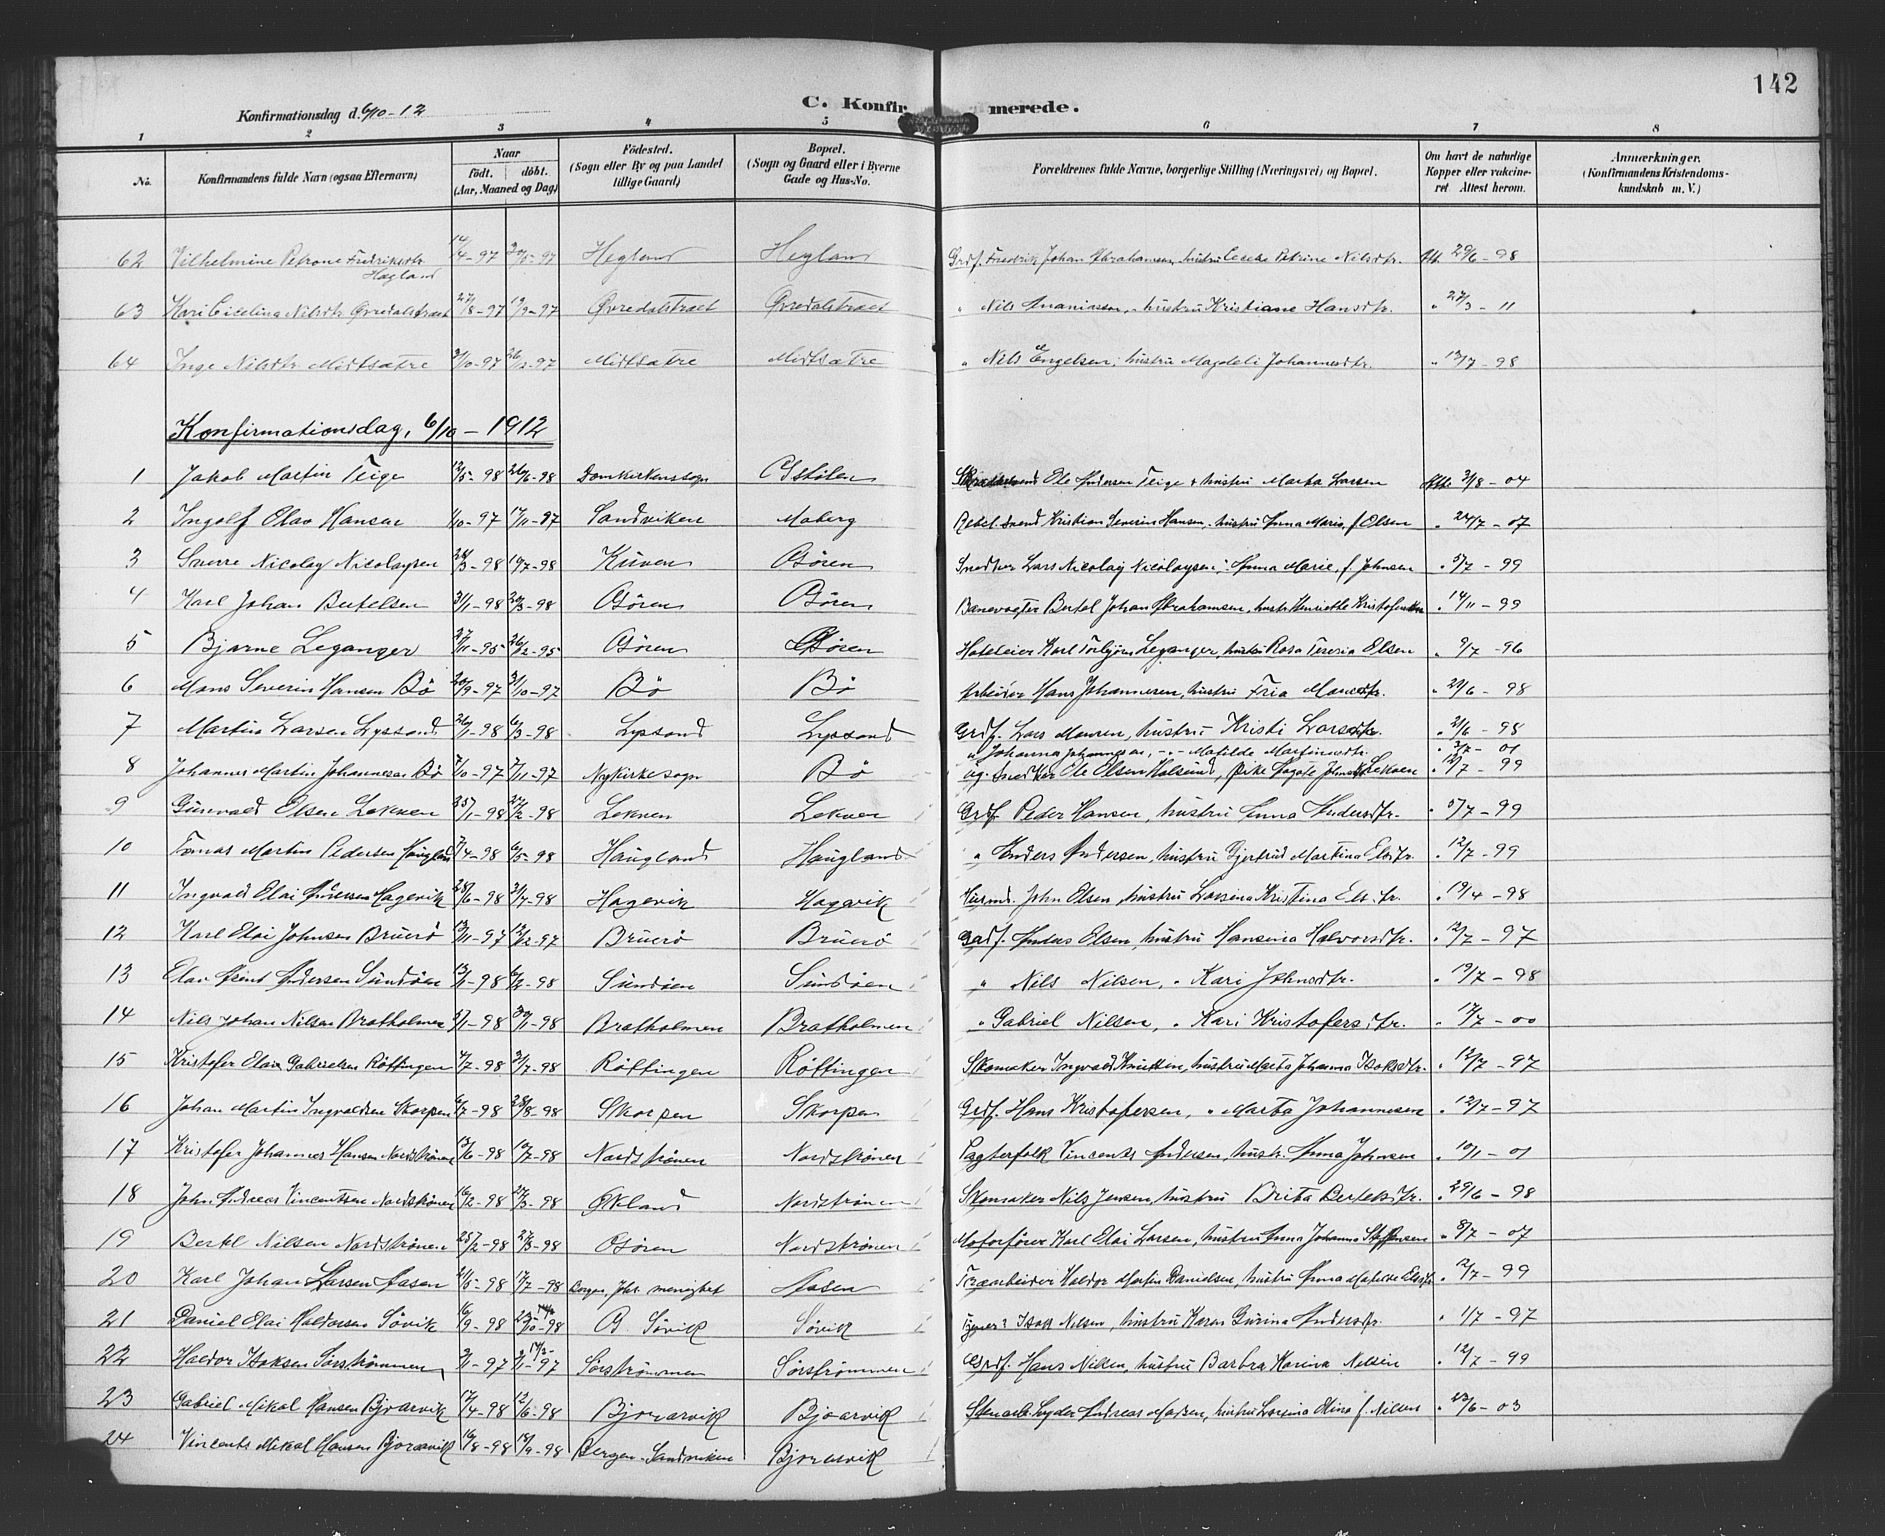 142
C. Konfirmerede.
Konfirmationsdag d. 6/10-12
1 2 3 4 5 6 7 8
No. Konfirmandens fulde Navn (ogsaa Efternavn) Naar født. døbt. (Aar, Maaned og Dag) Fødested. (Sogn eller By og paa Landet tillige Gaard) Bopæl. (Sogn og Gaard eller i Byerne Gade og Hus-No. Forældrenes fulde Navne, borgerlige Stilling (Næringsvei) og Bopæl. Om havt de naturlige Kopper eller vakcineret Attest herom. Anmærkninger. (Konfirmandens Kristendomskundskab m. V.)
62 Vilhelmine Petrone Fredriksdtr. Hegland 14/4-97 Hegland Hegland Grdf. Fredrik Johan Abrahamsen, hustru Petrine Nilsdtr. 29/6-98
63 Kari Nilsdtr. Øvredalstræet 27/8-97 19/9-97 Øvredalstræet Øvredalstræet " Nils Ananiassen, hustru Kristiane Hansdtr. 27/3-11
64 Inge Nilsdtr. Midtsætre 3/10-97 26/12-97 Midtsætre Midtsætre " Nils Engelsen, hustru Magdeli Johannesdtr. 13/7-98
Konfirmationsdag, 6/10-1912
1 Jakob Martin Teige 12/5-98 26/6-98 Domkirkens sogn Ole Andersen Teige & hustru Marta Larsen 3/8-04
2 Ingolf Olav Hansen 1/10-97 Sandviken Moberg Kristian Severin Hansen, Anna Marie, f. Olsen 24/7-07
3 Sverre Nicolay Nicolaysen 10/7-98 Kuven Osøren Snedker Lars Nicolay Nicolaysen, Anna Marie, f. Johnsen 5/7-99
4 Karl Johan Bertelsen 3/1-98 20/3-98 Osøren Osøren Banevogter Bertel Johan Abrahamsen, hustr. Henriette 14/11-99
5 Bjarne Leganger 27/11-95 26/12-95 Osøren Osøren Hoteleier Karl Torbjørn Leganger, hustru Rosa Teresia Olsen 9/7-96
6 Mons Severin Hansen Bø 20/9-97 3/10-97 Bø Bø Arbeider Hans Johannesen, hustru Monsdtr. 6-98
7 Martin Larsen Lysand 26/1-98 6/3-98 Lysand Lysand Grdf. Lars Monsen, hustru Kristi Larsdtr. 2/6-98
" Johannes Johannesen, Matilde Martinusdtr.
8 Johannes Martin Johannesen Bø 7/10-97 7/11-97 Nykirkesogn Bø Ole Olsen Holsund, pike Agate 12/7-99
9 Gunvald Olsen Lekven 25/1-98 27/2-98 Lekven Lekven Grdf. Peder Hansen, hustru Anna Andersdtr. 5/7-99
10 Tomas Martin Pedersen Haugland 7/4-98 6/5-98 Haugland Haugland " Anders Andersen, hustru Gjertrud Martina Elsdtr. 12/7-99
11 Ingvald Elai Andersen Hagevik 28/6-98 31/7-98 Hagevik Hagevik Husmd. John Olsen, hustru Larsina Kristina Elsdtr. 19/4-98
12 Karl Elai Johnsen Bruerø 13/11-97 12/12-97 Bruerø Bruerø Grdf. Anders Olsen, hustru Hansina Halvorsdtr. 12/7-97
13 Andersen Sundøen 13/1-98 Sundøen Sundøen " Nils Nilsen, " Kari Johnsdtr. 19/7-98
14 Nils Johan Nilsen Bratholmen 5/1-98 30/1-98 Bratholmen Bratholmen " Gabriel Nilsen, " Kari Kristofersdtr. 17/7-00
15 Kristofer Elai Gabrielsen Røttingen 4/7-98 31/7-98 Røttingen Røttingen Skomaker Ingvald Knutsen, hustru Marta Johanna Isaksdtr. 12/7-97
16 Johan Martin Ingvaldsen Skorpen 6/7-98 28/8-98 Skorpen Skorpen Grdf. Hans Kristofersen, " Marta Johannesen 12/7-97
17 Kristofer Johannes Hansen Nordstrønen 13/6-98 10/7-98 Nordstrønen Nordstrønen Pagterfolk Vincents Andersen, hustr. Anna Johnsen 10/1-01
18 John Andreas Vincentsen Nordstrønen 16/2-98 27/3-98 Økland Nordstrønen Skomaker Nils Jensen, hustru Brita Bertelsdtr. 29/6-98
19 Bertel Nilsen Nordstrønen 25/2-98 27/3-98 Osøren Nordstrønen Motorfører Karl Elai Larsen, hustru Anna Johanna Steffensen 8/7-07
20 Karl Johan Larsen Aasen 5-98 17/7-98 Bergen, Joh. menighet Aasen Træarbeider Haldor Martin Danielsen, hustru Anna Matilde Elsdtr. 12/7-99
21 Daniel Elai Haldorsen Søvik 16/9-98 10-98 Søvik Søvik Isak Nilsen, hustru Karen Gurina Andersdtr. 1/7-97
22 Haldor Isaksen Sørstrømmen 3/1-97 Sørstrømmen Sørstrømmen Grdf. Hans Nilsen, hustru Barbra Karina Nilsen 12/7-99
23 Gabriel Mikal Hansen Bjoarvik 17/4-98 12/6-98 Bjoarvik Bjoarvik Andreas Madsen, hustru Larsina Olina f. Nilsen 23/6-03
24 Vincents Mikal Hansen Bjoarvik 16/8-98 18/9-98 Bergen, Sandviken Bjoarvik